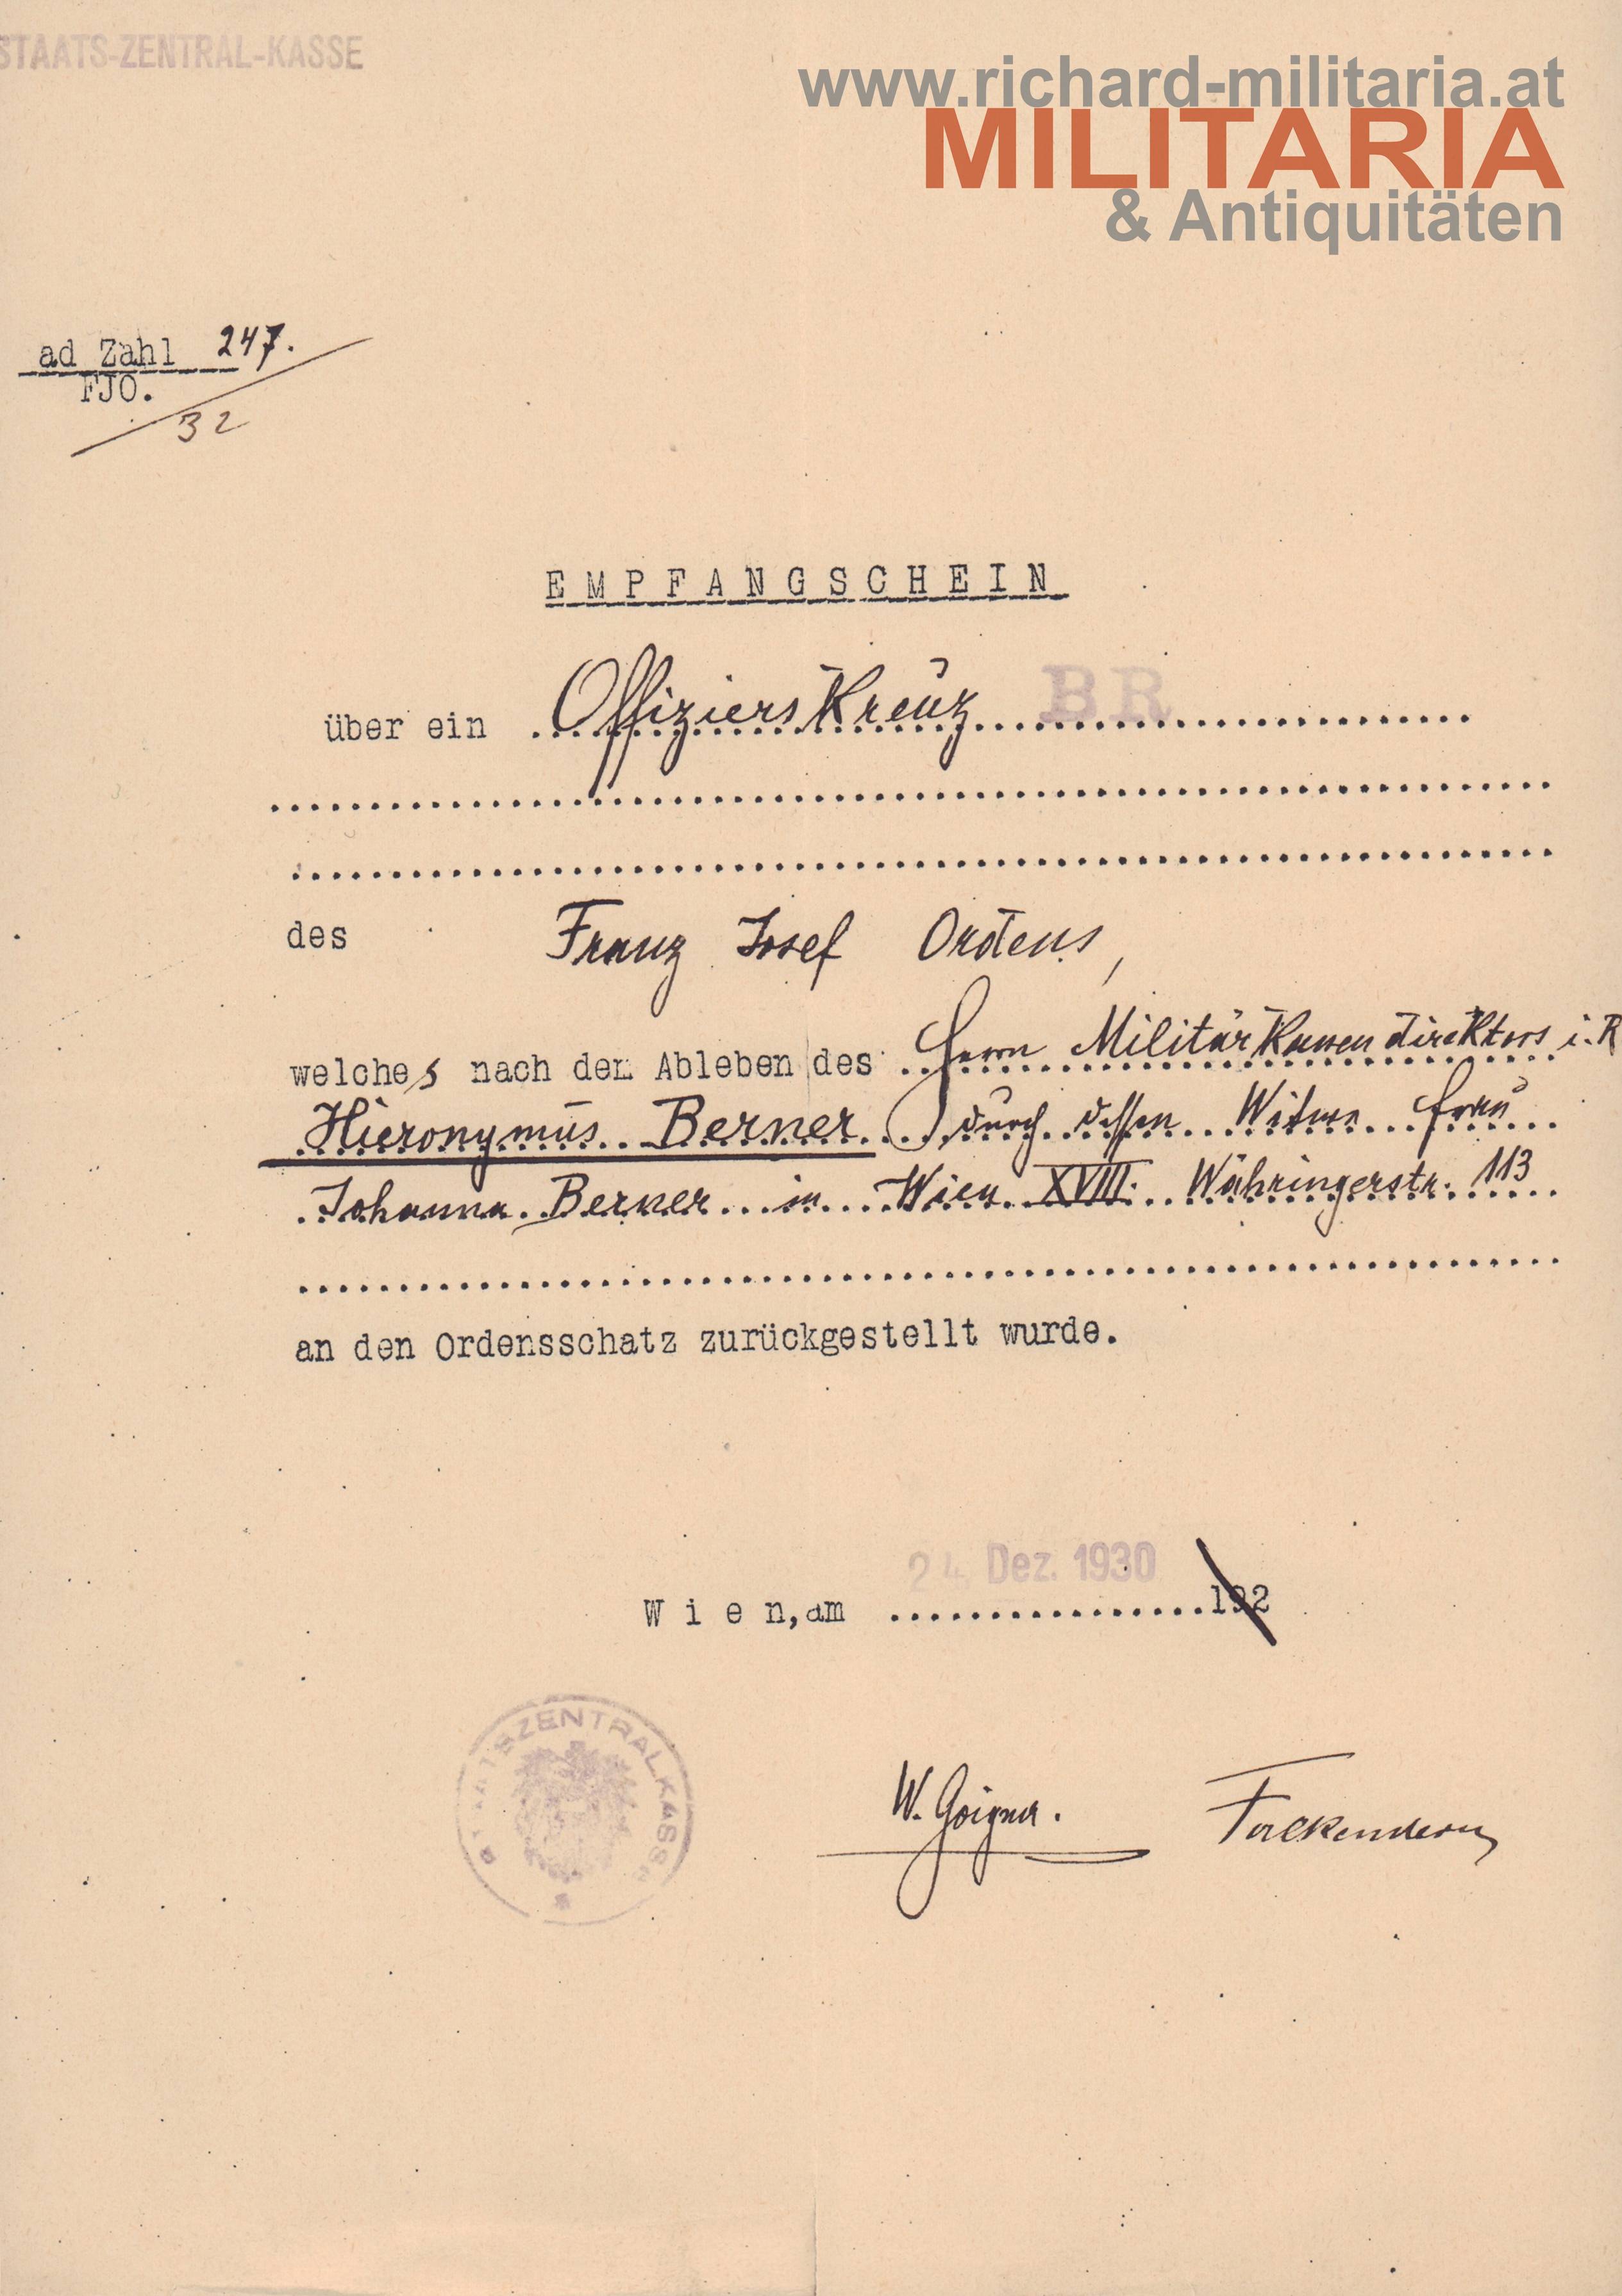 STAATS-ZENTRAL-KASSE
www.richard-militaria.at
MILITARIA
& Antiquitäten
ad Zahl 247.
FJO.
32
EMPFANGSCHEIN
über ein Offizierskreuz BR
des Franz Josef Ordens,
welches nach dem Ableben des Herrn Militärkassendirektors i. R
Hieronymus Berner durch dessen Witwe Frau
Johanna Berner in Wien XVIII. Währingerstr. 113
an den Ordensschatz zurückgestellt wurde.
24. Dez. 1930
Wien, am 192
STAATSZENTRALKASSE
W.